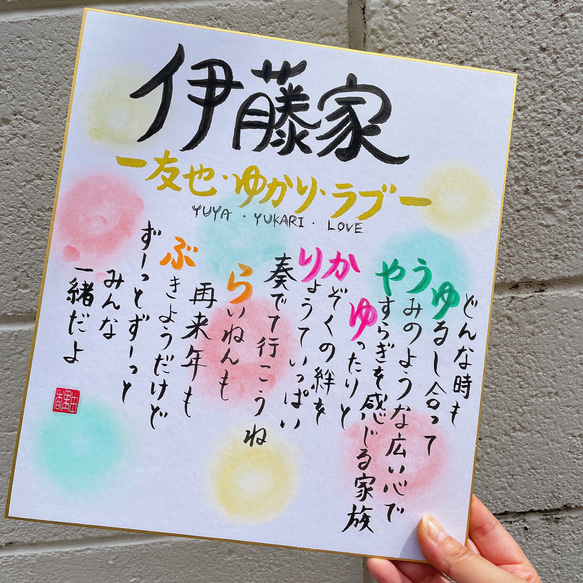 伊藤家
ー友也・ゆかり・ラブー
YUYA・YUKARI・LOVE
どんな時も
ゆるし合って
うみのような広い心で
やすらぎを感じる家族
ゆったりと
かぞくの絆を
りょうていっぱい
奏でて行こうね
らいねんも
再来年も
ぶきようだけど
ずーっとずーっと
みんな
一緒だよ